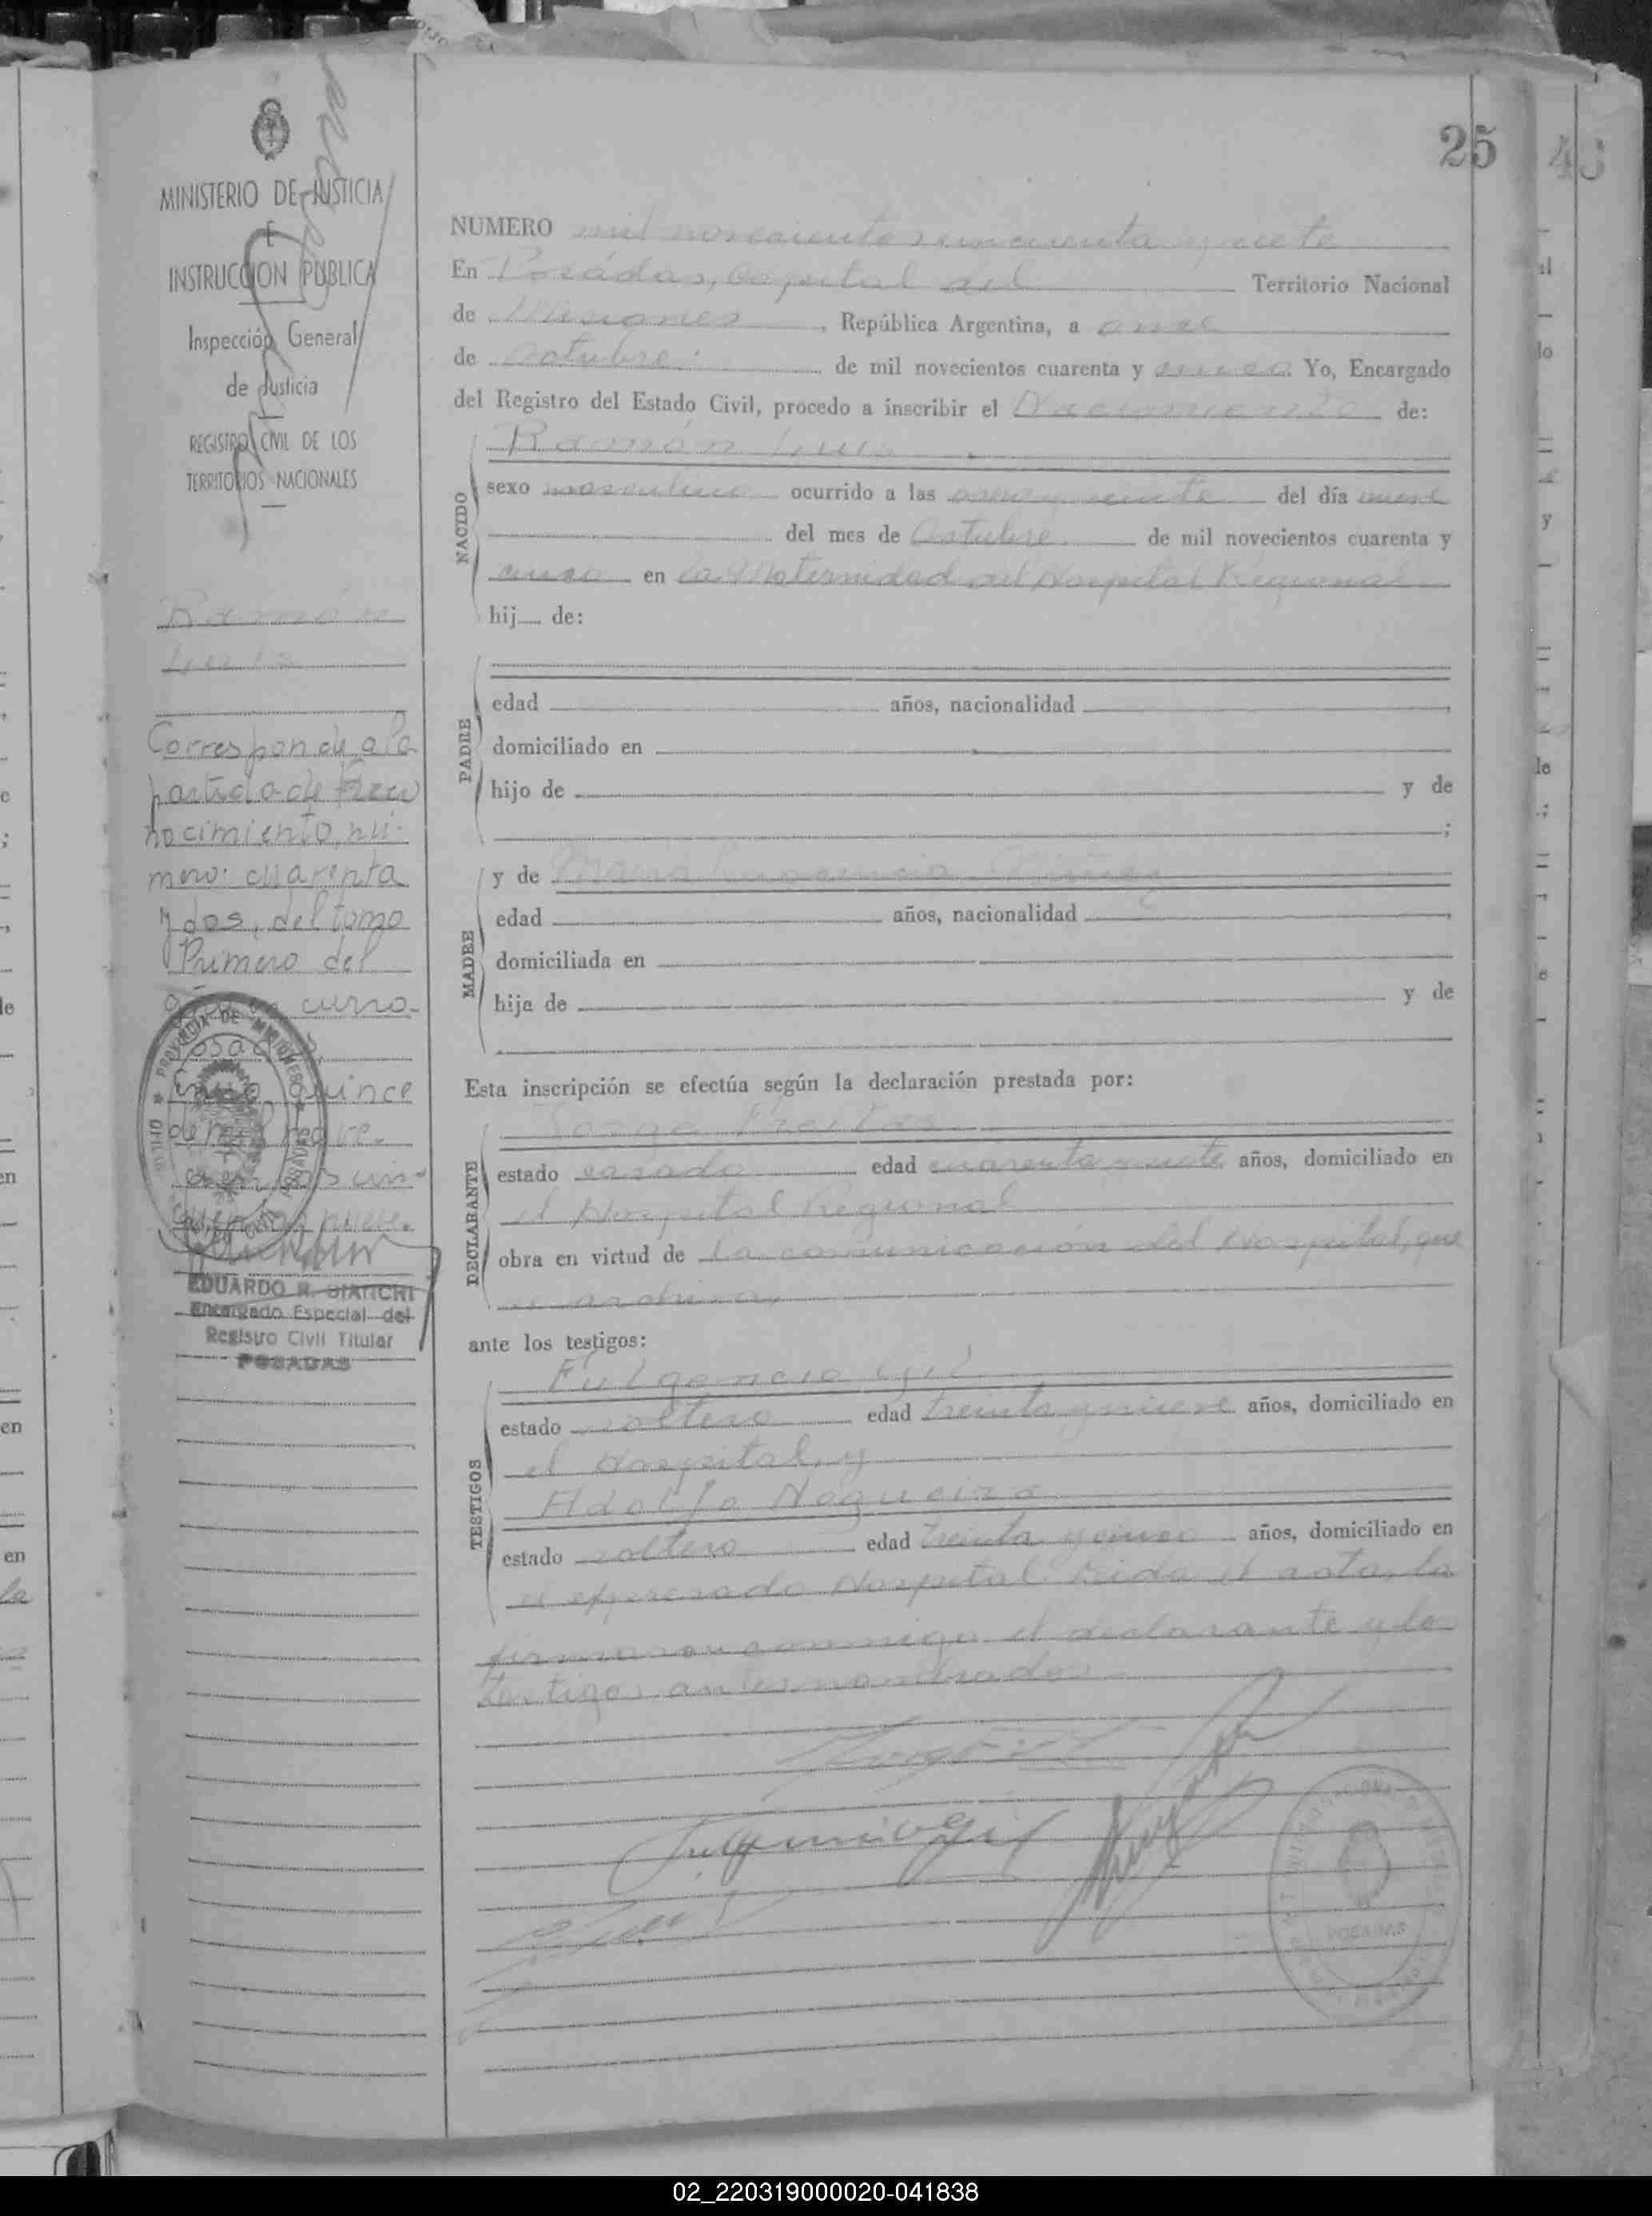 25
MINISTERIO DE JUSTICIA
E
INSTRUCCION PUBLICA
Inspección General
de Justicia
REGISTRO CIVIL DE LOS
TERRITORIOS NACIONALES
Ramón
Luis
Corresponde a la
partida de Reco
nocimiento, nú-
mero: cuarenta
y dos, del tomo
Primero del
curso.
quince
de mil nove.
EDUARDO R. BIANCHI
Encargado Especial del
Registro Civil Titular
POSADAS
NUMERO mil novecientos cincuenta y siete
En Posadas, Capital del Territorio Nacional
de Misiones, República Argentina, a once
de Octubre de mil novecientos cuarenta y cinco. Yo, Encargado
del Registro del Estado Civil, procedo a inscribir el Nacimiento de:
NACIDO
Ramón Luis
sexo masculino ocurrido a las once y veinte del día nueve
del mes de Octubre de mil novecientos cuarenta y
cinco en la Maternidad del Hospital Regional
hij de:
PADRE
edad años, nacionalidad
domiciliado en
hijo de y de
;
MADRE
y de María
edad años, nacionalidad
domiciliada en
hija de y de
Esta inscripción se efectúa según la declaración prestada por:
DECLARANTE
Jorge Freitas
estado casado edad cuarenta y siete años, domiciliado en
el Hospital Regional
obra en virtud de la comunicación del Hospital, que
se archiva,
ante los testigos:
TESTIGOS
Fulgencio Gil
estado soltero edad treinta y nueve años, domiciliado en
el Hospital, y
Adolfo Nogueira
estado soltero edad treinta y cinco años, domiciliado en
el expresado Hospital. Leida el acta, la
firmaron conmigo el declarante y lo
testigos antes nombrados.
POSADAS
02_220319000020-041838